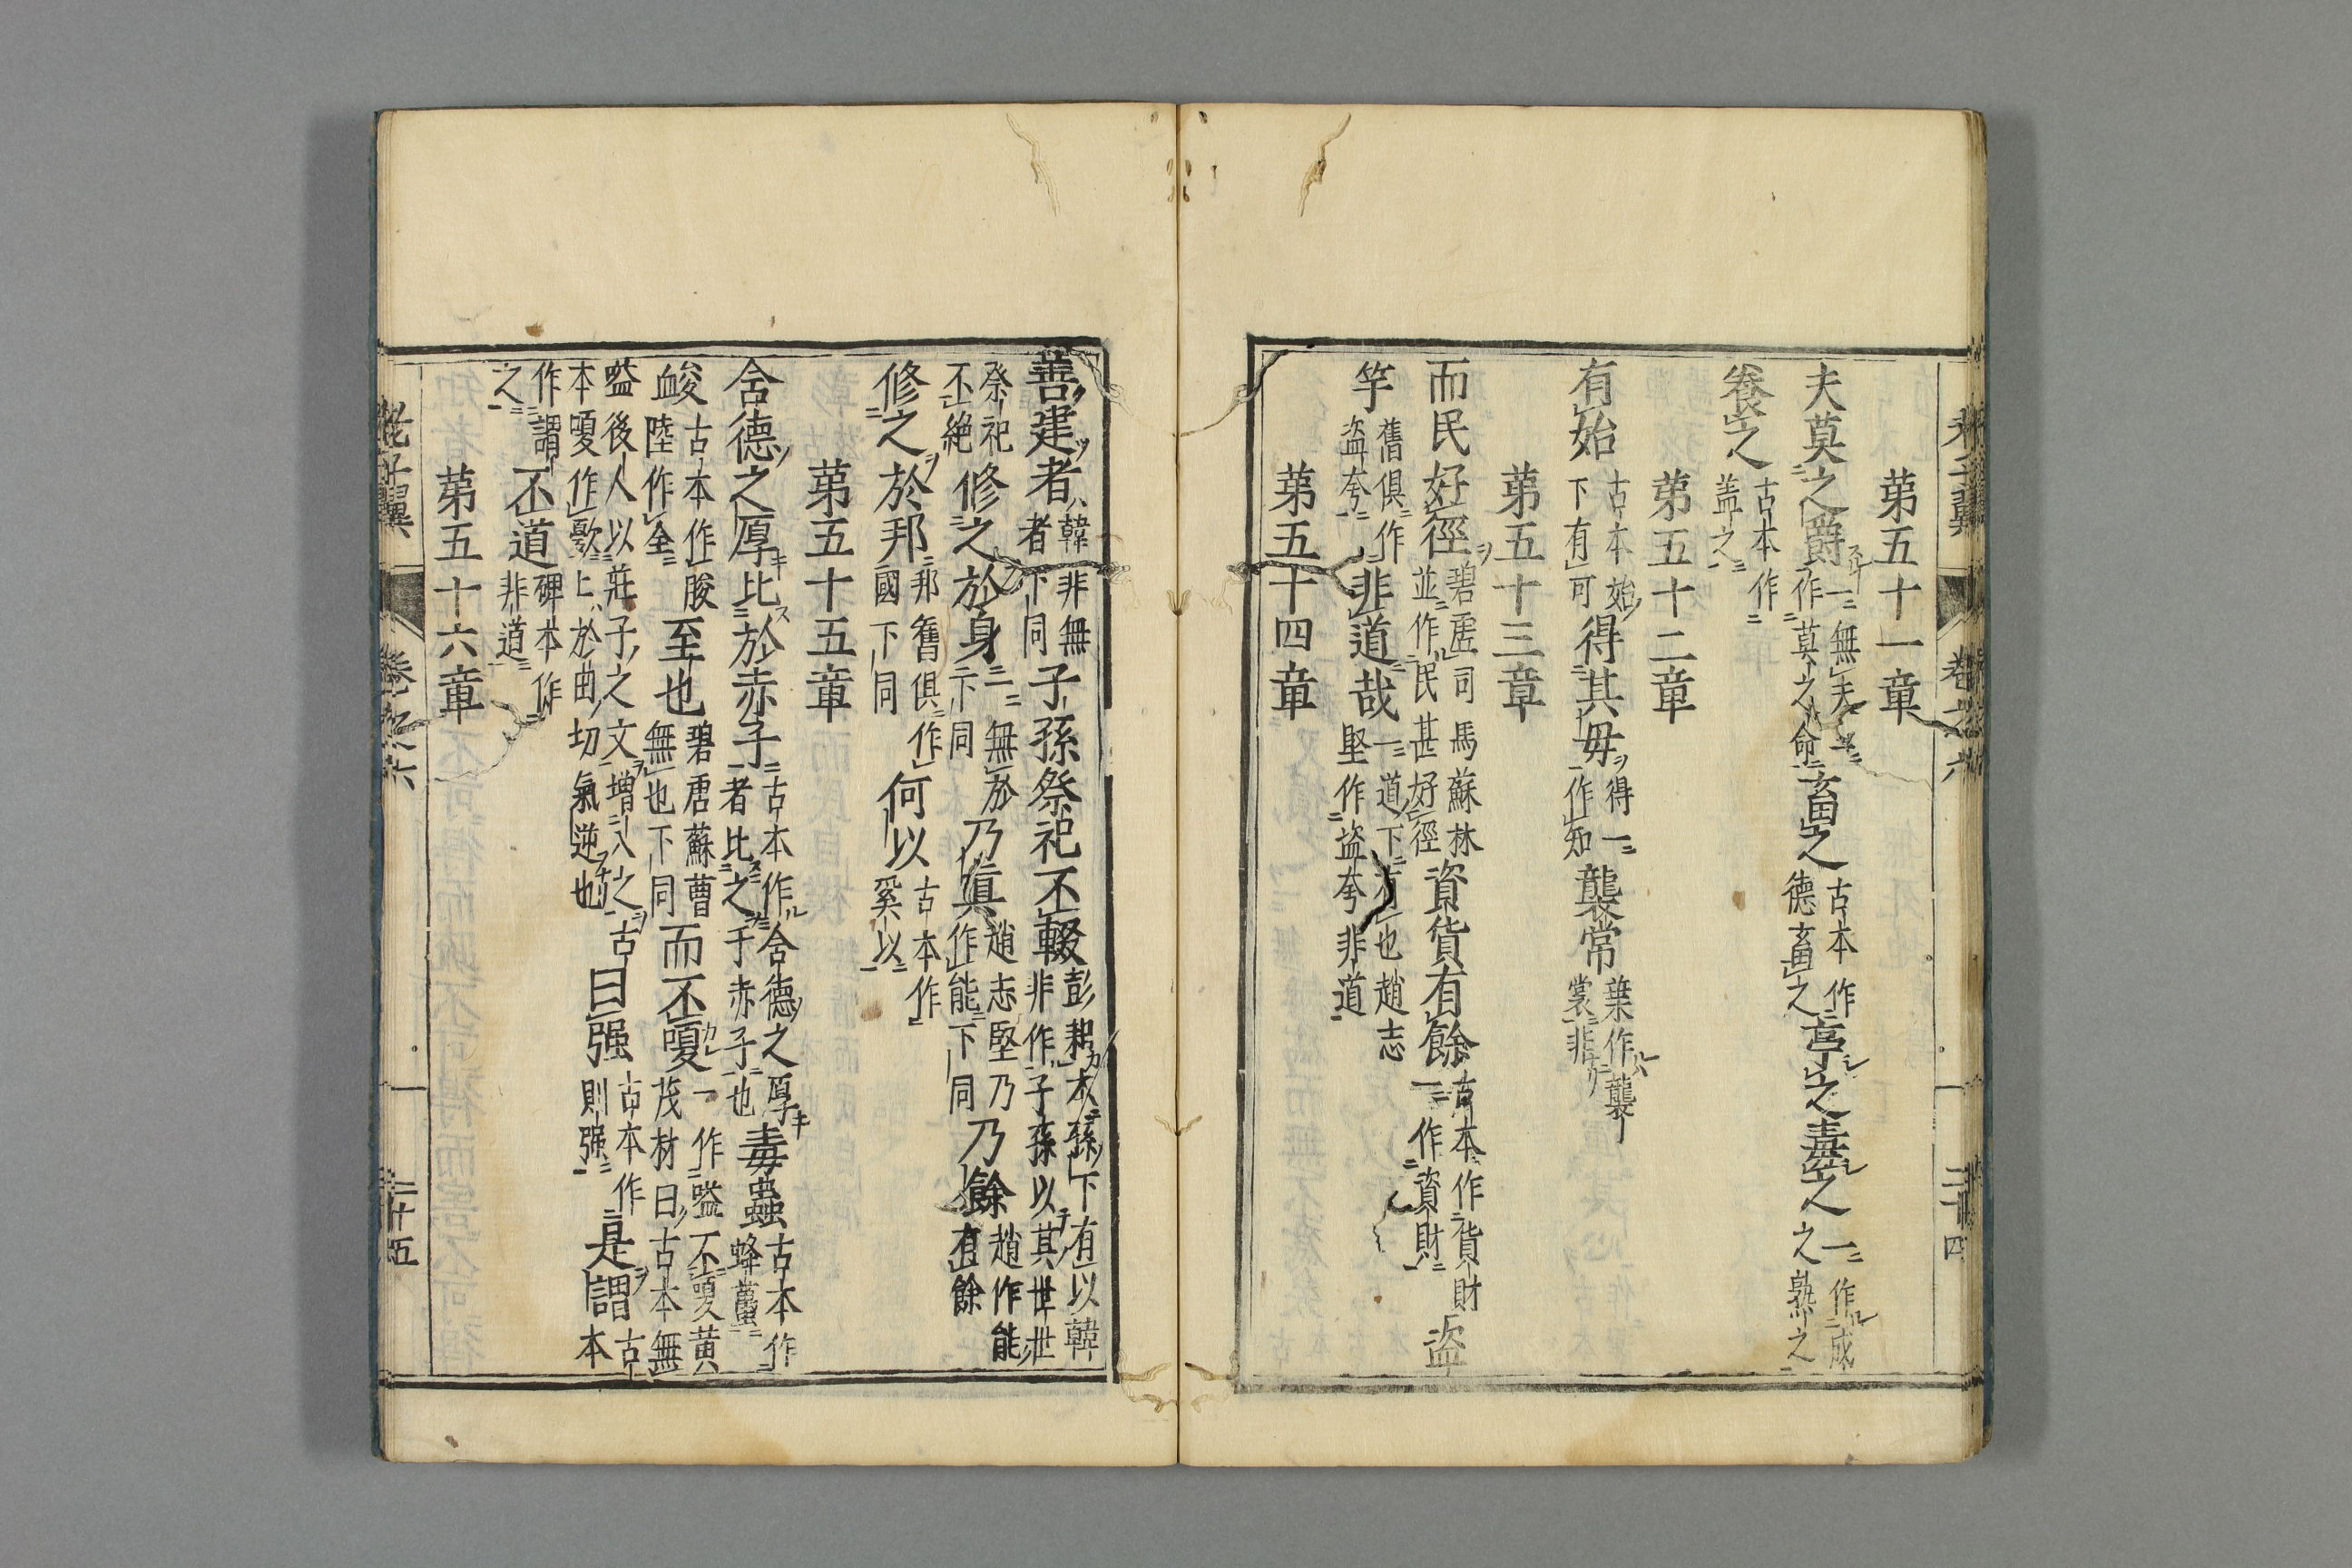 第五十一章
夫莫之爵一無夫作莫之命畜之古本作德畜之亭之毒之一作成之熟之
養之古本作蓋之
第五十二章
有始古本始下有可得其母得一作知襲常葉作襲裳非
第五十三章
而民好徑碧虛司馬蘇林並作民甚好徑資貨有餘古本作貨財一作資財盜
竽舊俱作盜夸非道哉一道下有也趙志堅作盜夸非道
第五十四章
老子翼 卷之六 二十四
善建者韓非無者下同子孫祭祀不輟彭耜本孫下有以韓非作子孫以其世世
祭祀不絕修之於身一無於下同乃真趙志堅乃作能下同乃餘趙作能有餘
修之於邦邦舊俱作國下同何以古本作奚以
第五十五章
含德之厚比於赤子古本作含德之厚者比之于赤子也毒蟲古本作蜂蠆
䘒古本作朘陸作全至也碧虛蘇曹無也下同而不嗄一作嗌不嗄黃茂材曰古本無
嗌後人以莊子之文增入之古本嗄作歍上於曲切氣逆也曰强古本作則强是謂古本
作謂之不道碑本作非道
第五十六章
老子翼 卷之六 二十五